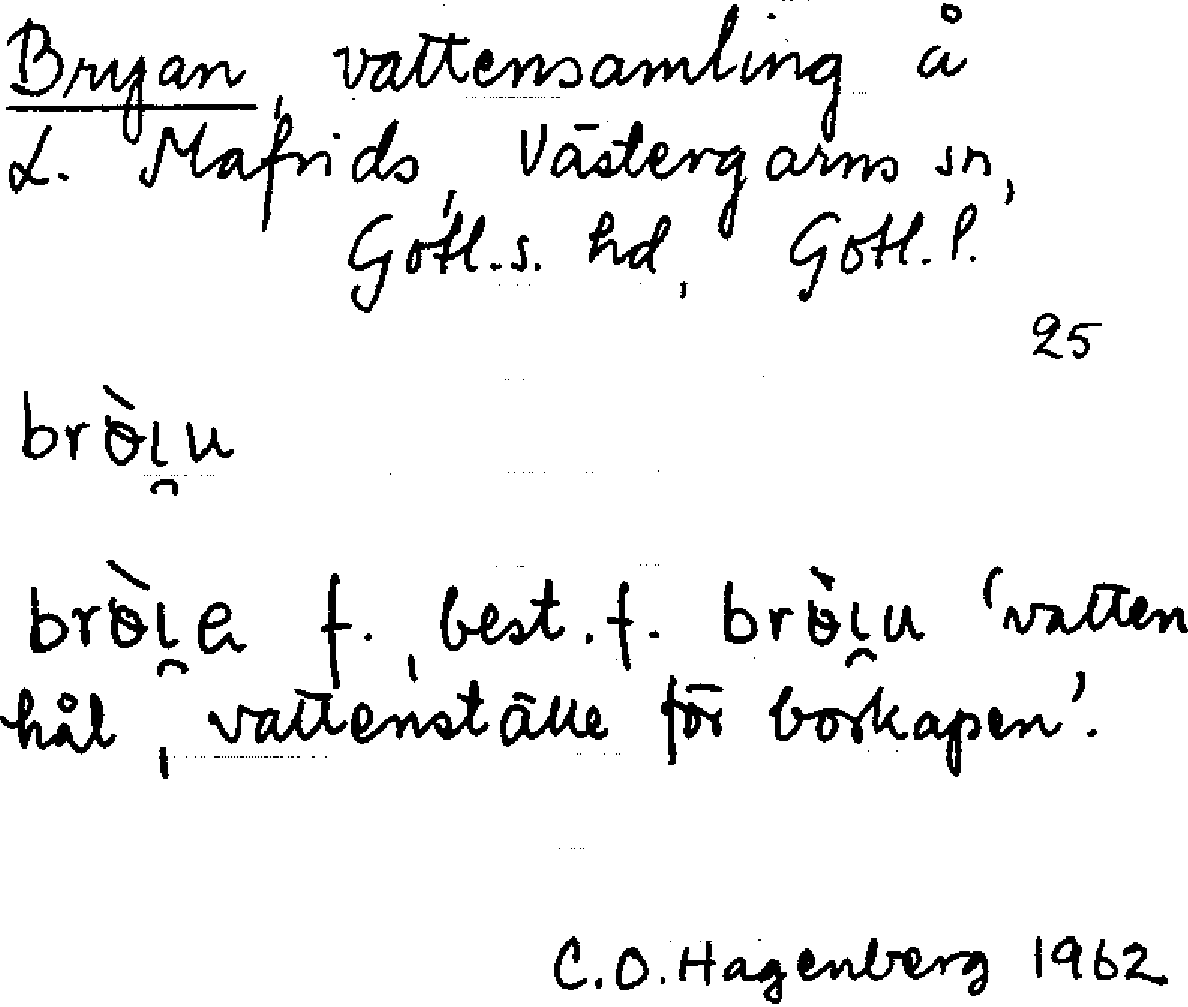 Bryan, vattensamling å
L. Mafrids, Västergarns sn,
Gotl. s. hd, Gotl. l.
25
brɵ̀ı̯u
brɵ̀ı̯a f., best. f. brɵ̀ı̯u 'vatten
hål, vattenställe för boskapen'.
C.O. Hagenberg 1962